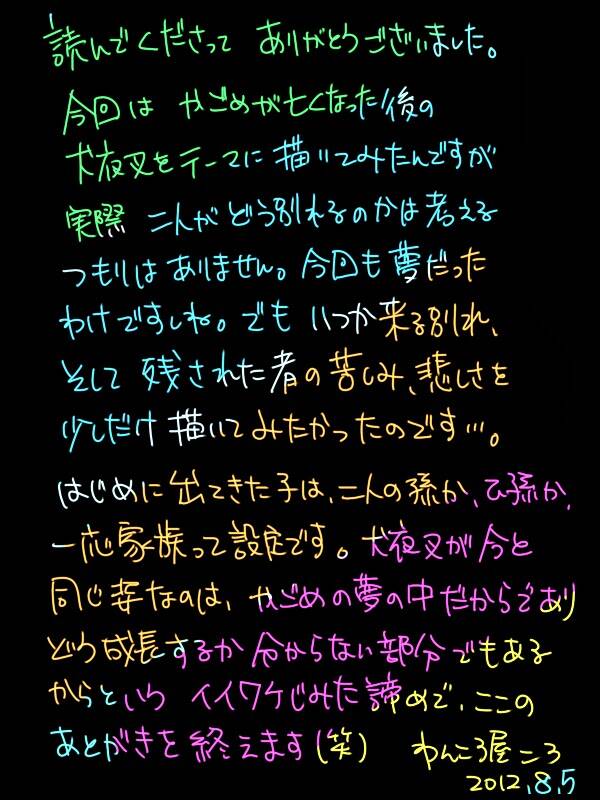 読んでくださって ありがとうございました。
今回は かごめが亡くなった後の
犬夜叉をテーマに描いてみたんですが
実際 二人がどう別れるのかは考える
つもりはありません。今回も夢だった
わけですしね。でも いつか来る別れ、
そして 残された者の苦しみ、悲しさを
少しだけ 描いてみたかったのです…。
はじめに出てきた子は、二人の孫か、ひ孫か、
一応家族って設定です。犬夜叉が今と
同じ姿なのは、かごめの夢の中だからであり
どう成長するか分からない部分でもある
からという イイワケじみた諦めで、ここの
あとがきを終えます(笑) わんころ屋 ころ
2012.8.5